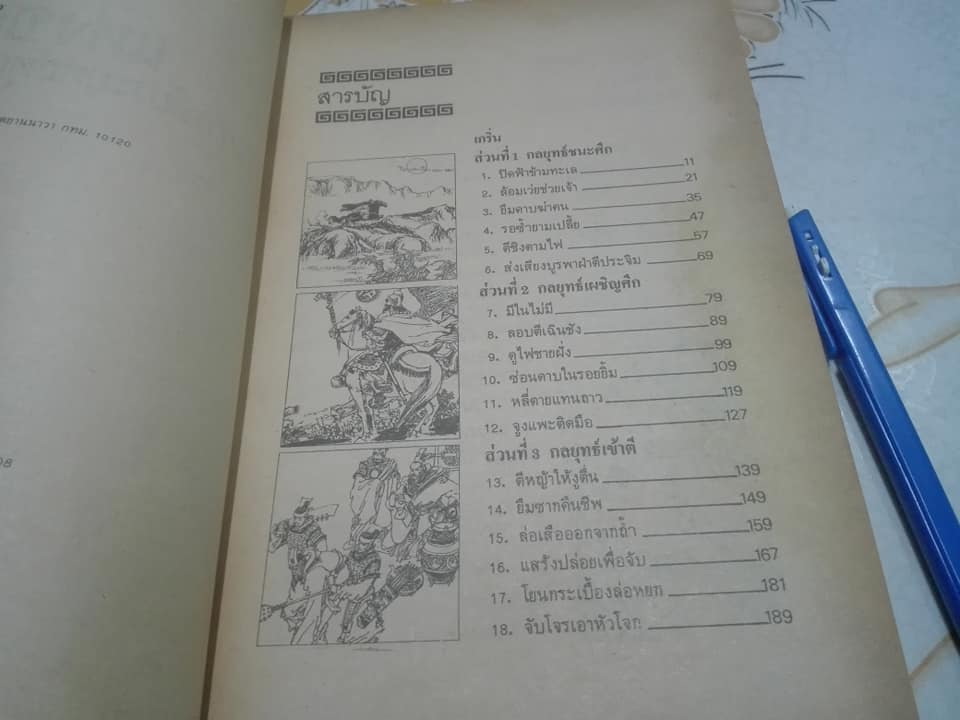 ยานนาวา กทม. 10120
สารบัญ
เกริ่น
ส่วนที่ 1 กลยุทธ์ชนะศึก
1. ปิดฟ้าข้ามทะเล 11
2. ล้อมเว่ยช่วยเจ้า 21
3. ยืมดาบฆ่าคน 35
4. รอซ้ำยามเปลี้ย 47
5. ตีชิงตามไฟ 57
6. ส่งเสียงบูรพาฝ่าตีประจิม 69
ส่วนที่ 2 กลยุทธ์เผชิญศึก
7. มีในไม่มี 79
8. ลอบตีเฉินชัง 89
9. ดูไฟชายฝั่ง 99
10. ซ่อนดาบในรอยยิ้ม 109
11. หลี่ตายแทนถาว 119
12. จูงแพะติดมือ 127
ส่วนที่ 3 กลยุทธ์เข้าตี
13. ตีหญ้าให้งูตื่น 139
14. ยืมซากคืนชีพ 149
15. ล่อเสือออกจากถ้ำ 159
16. แสร้งปล่อยเพื่อจับ 167
17. โยนกระเบื้องล่อหยก 181
18. จับโจรเอาหัวโจก 189